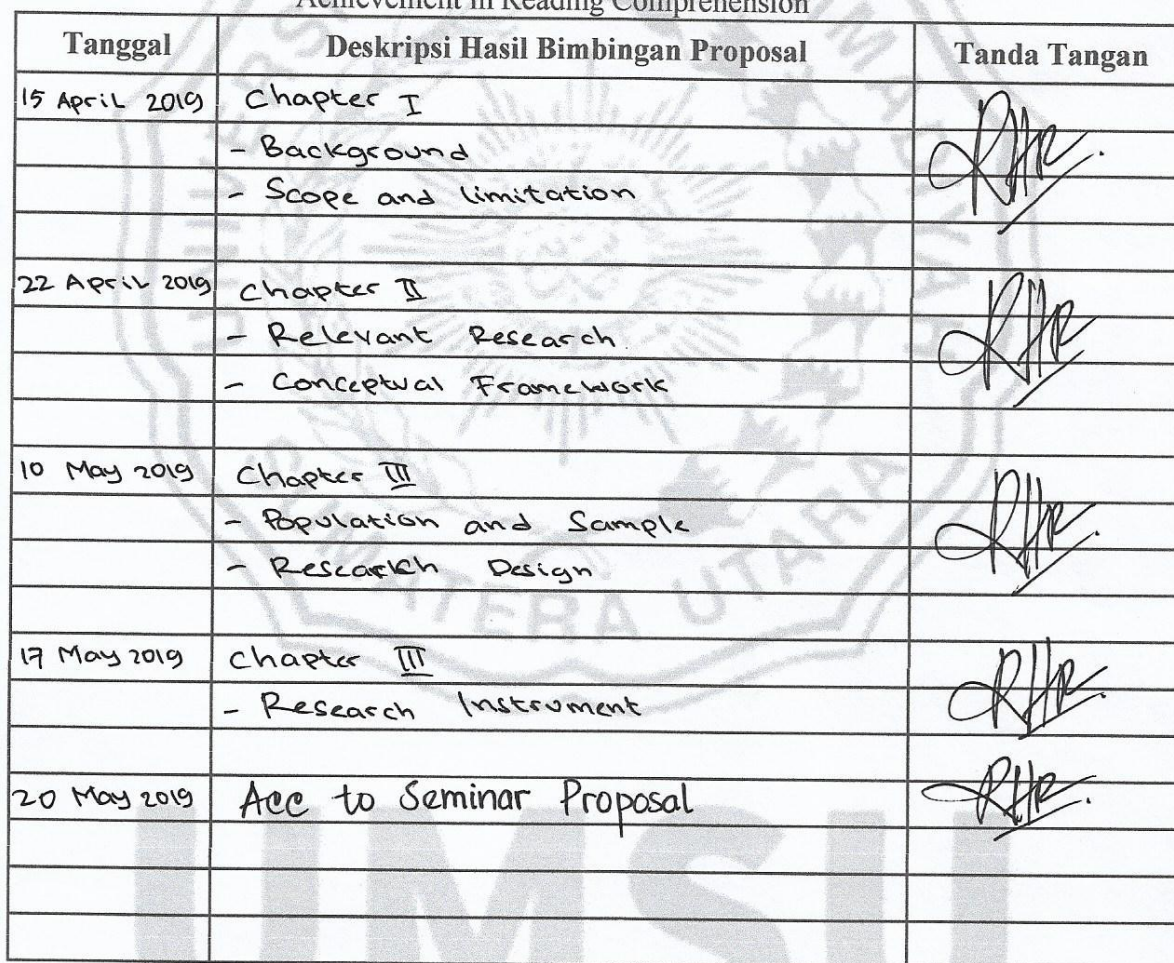 Achievement in Reading Comprehension
Tanggal Deskripsi Hasil Bimbingan Proposal Tanda Tangan
15 April 2019 Chapter I
- Background
- Scope and limitation
22 April 2019 Chapter II
- Relevant Research
- Conceptual Framework
10 May 2019 Chapter III
- Population and Sample
- Research Design
17 May 2019 Chapter III
- Research Instrument
20 May 2019 Acc to Seminar Proposal
SUMATERA UTARA
UMSU